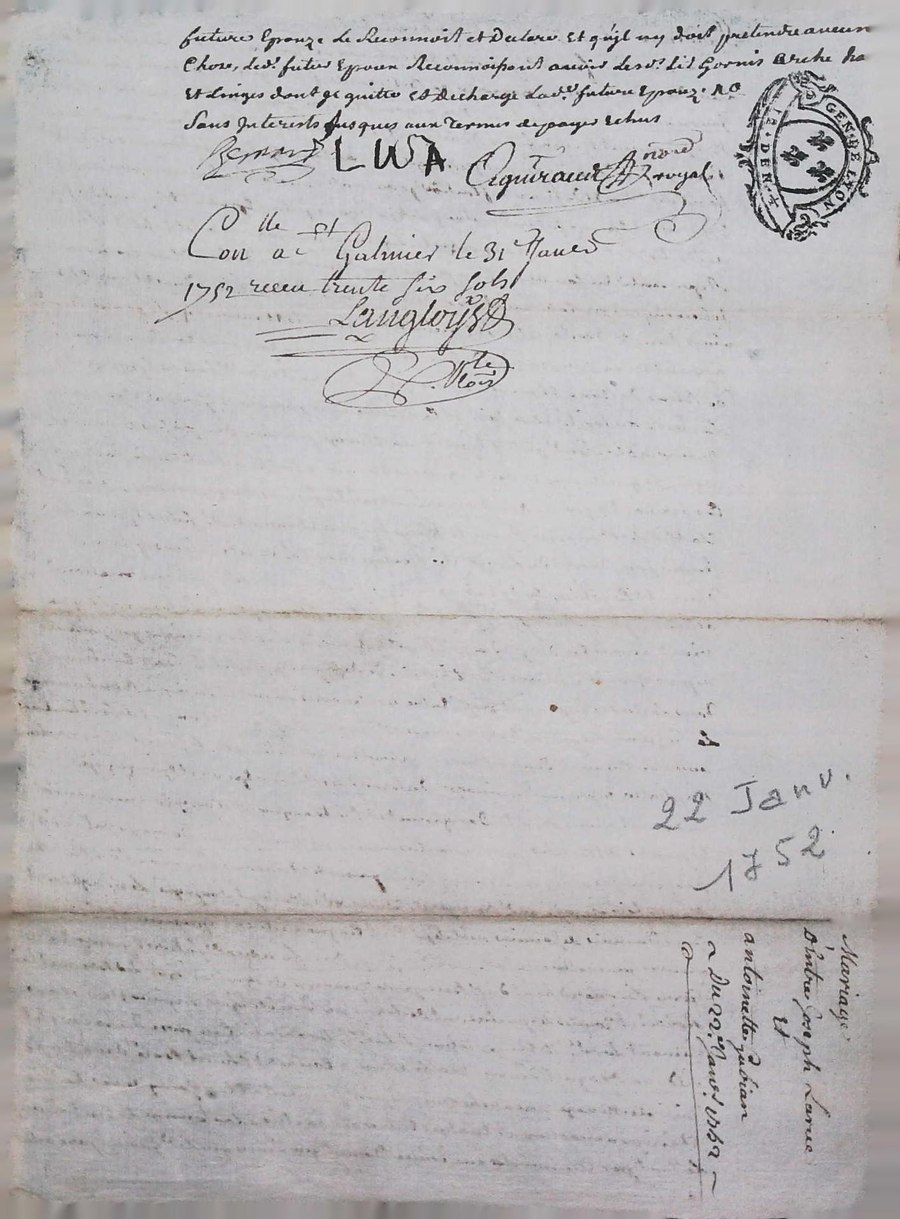 future Epouze Le Reconnoit et Declare Et qu'il ny doit pretendre aucun
Chose, led. futur Epoux Reconnoissant avoir les d. Lit Gornis arche
Et Linges dont Je quitte Et Decharge Lad. future Epouze.
Sans Interests Jusques aux Termes de payer Echus
LWA
nore royal
GEN. DE LYON
Con lle a St Galmier le 31e Janer
1752 receu trente Six Sols
Langloys
22 Janv.
1752
Mariage
D'entre Joseph Larue
Et
antoinette
Du 22e Janv 1752